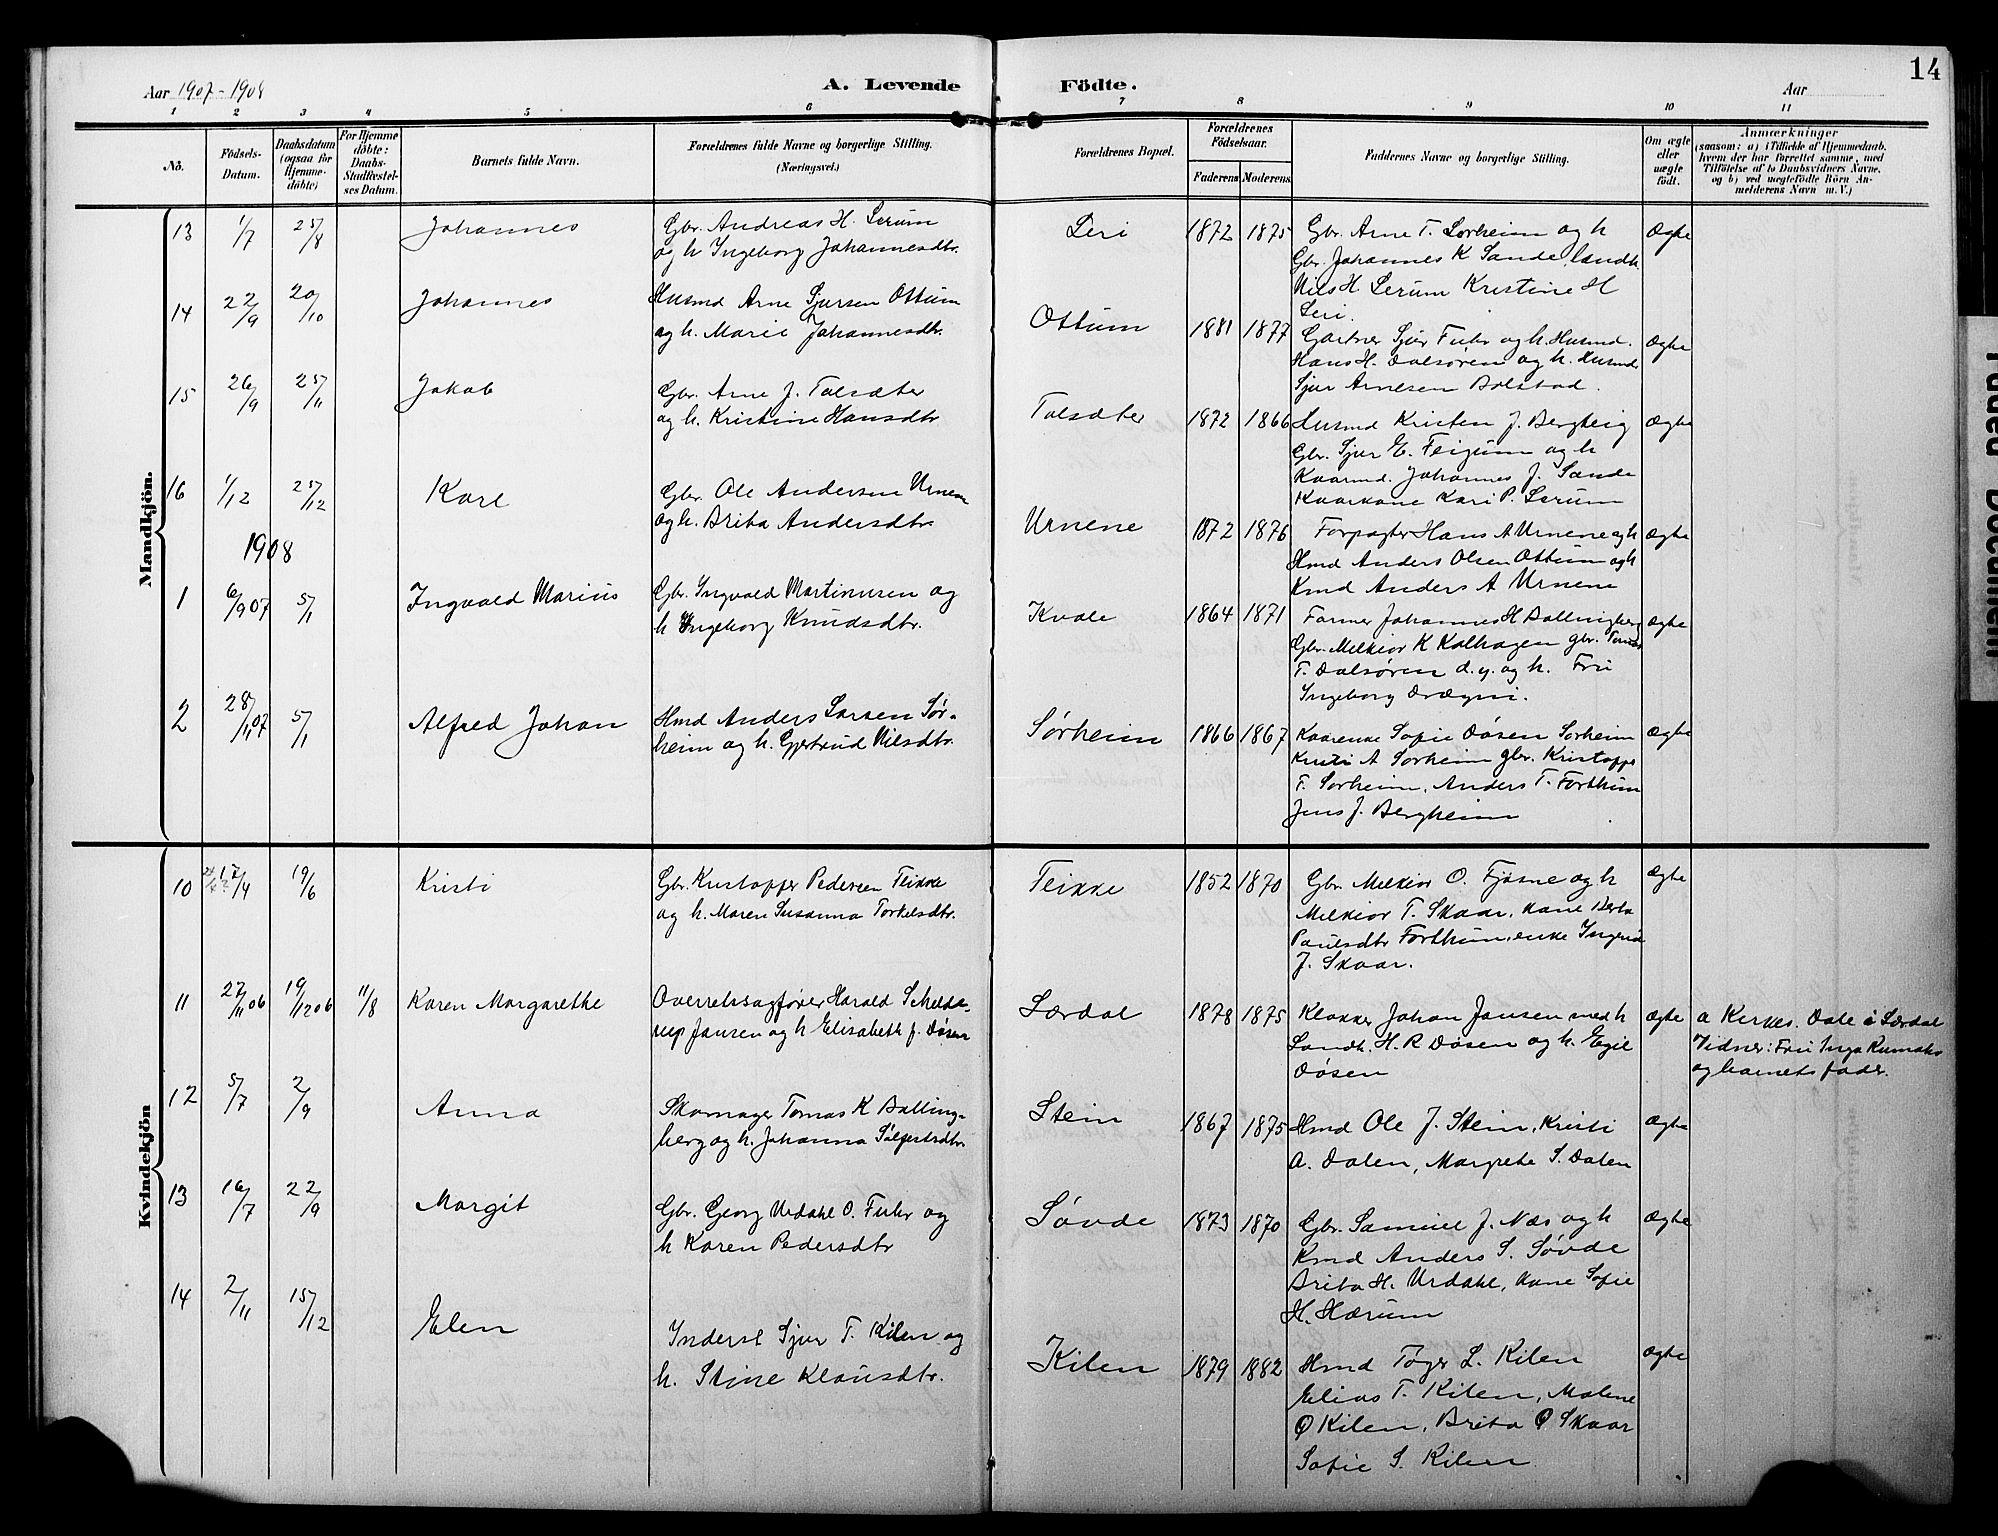 14
Aar 1907-1908
A. Levende
Födte.
Aar
1 2 3 4 5 6 7 8 9 10 11
No.
Födsels-
Datum.
Daabsdatum
(ogsaa for
Hjemme-
döbte)
For Hjemme
döbte:
Daabs-
Stadfæstel-
ses Datum.
Barnets fulde Navn.
Forældrenes fulde Navne og borgerlige Stilling.
(Næringsvei.)
Forældrenes Bopæl.
Forældrenes
Födselsaar.
Faderens Moderens
Faddernes Navne og borgerlige Stilling.
Om ægte
eller
uægte
födt.
Anmærkninger
(saasom: a) i Tilfælde af Hjemmedaab,
hvem der har forrettet samme, med
Tilföielse af to Daabsvidners Navne,
og b) ved uægtefödte Börn An-
melderens Navn m. V.)
Mandkjön.
13 1/7 25/8 Johannes
Gbr. Andreas H. Lerum
og h Ingeborg Johannesdtr.
Leri 1872 1875
Gbr. Arne T. Sørheim og h
Gbr. Johannes K Sande, landh.
Nils H Lerum Kristine H
Leri.
Ægte
14 22/9 20/10 Johannes
Husmd Arne Sjursen Ottum
og h. Marie Johannesdtr.
Ottum 1881 1877
Gartner Sjur Fuhr og h. Husmd.
Hans H. Dalsøren og h. Husmd
Sjur Arnesen Bolstad.
Ægte
15 26/9 25/11 Jakob
Gbr. Arne J. Talsæter
og h. Kristine Hansdtr
Talsæter 1872 1866
Husmd Kristen J. Bergheig
Gbr. Sjur E. Feigum og h
Kaarmd. Johannes J. Sande
Kaarkone Kari P. Lerum
Ægte
16 1/12 25/12 Karl
Gbr. Ole Andersen Urnene
og h. Brita Andersdtr.
Urnene 1872 1876
Forpagter Hans A Urnene og h
Hmd Anders Olsen Ottum og h
Kmd Anders A Urnene
Ægte
1908
1 6/9 07 5/1 Ingvald Marius
Gbr. Ingvald Martinusen og
h Ingeborg Knudsdtr.
Kvale 1864 1871
Farmer Johannes H Bollingberg
Gbr. Melkior K Kalhagen gbr. Tomas
T. Dalsøren d. y. og h. Fru
Ingeborg Drægni.
Ægte
2 28/11 07 5/1 Alfred Johan
Hmd Anders Larsen Sør-
heim og h. Gjertrud Nilsdtr.
Sørheim 1866 1867
Kaarenke Sofie Døsen Sørheim
Kristi A Sørheim gbr. Kristoffer
T. Sørheim, Anders T. Forthun
Jens J. Bergheim
Ægte
Kvindekjön
10 17/4 19/6 Kristi
Gbr. Kristoffer Pedersen Teikke
og h. Maren Susanna Torkelsdtr.
Teikke 1852 1870
Gbr. Melkior O. Fjøsne og h
Melkior T. Skaar, Kone Berta
Paulsdtr Forthun, enke Ingrid
J. Skaar.
Ægte
11 27/11 06 19/12 06 11/8 Karen Margarethe
Overretssagfører Harald Schelde-
rup Jansen og h Elisabeth f. Døsen
Lærdal 1878 1875
Klokker Johan Jansen med h
Landh. H. R Døsen og h. Egil
Døsen
Ægte
a Kirkes. Dale i Lærdal
Vidner: Fru Inga
og barnets fader.
12 5/7 2/9 Anna
Skomager Tomas K Bolling-
berg og h. Johanna Sølfestsdtr.
Stein 1867 1875
Hmd Ole J. Stein, Kristi
A. Dalen, Margrete S. Dalen
Ægte
13 16/7 22/9 Margit
Gbr. Georg Urdahl O. Fuhr og
h Karen Pedersdtr
Søvde 1873 1870
Gbr. Samuel J. Næs og h
Kmd Anders S. Søvde
Brita H. Urdahl, Kone Sofie
H. Hærum
Ægte
14 2/11 15/12 Elen
Inderst Sjur T. Kilen og
h. Stine Klausdtr.
Kilen 1879 1882
Hmd Tøger L. Kilen
Elias T. Kilen, Malene
O Kilen, Brita O Skaar
Sofie S. Kilen
Ægte